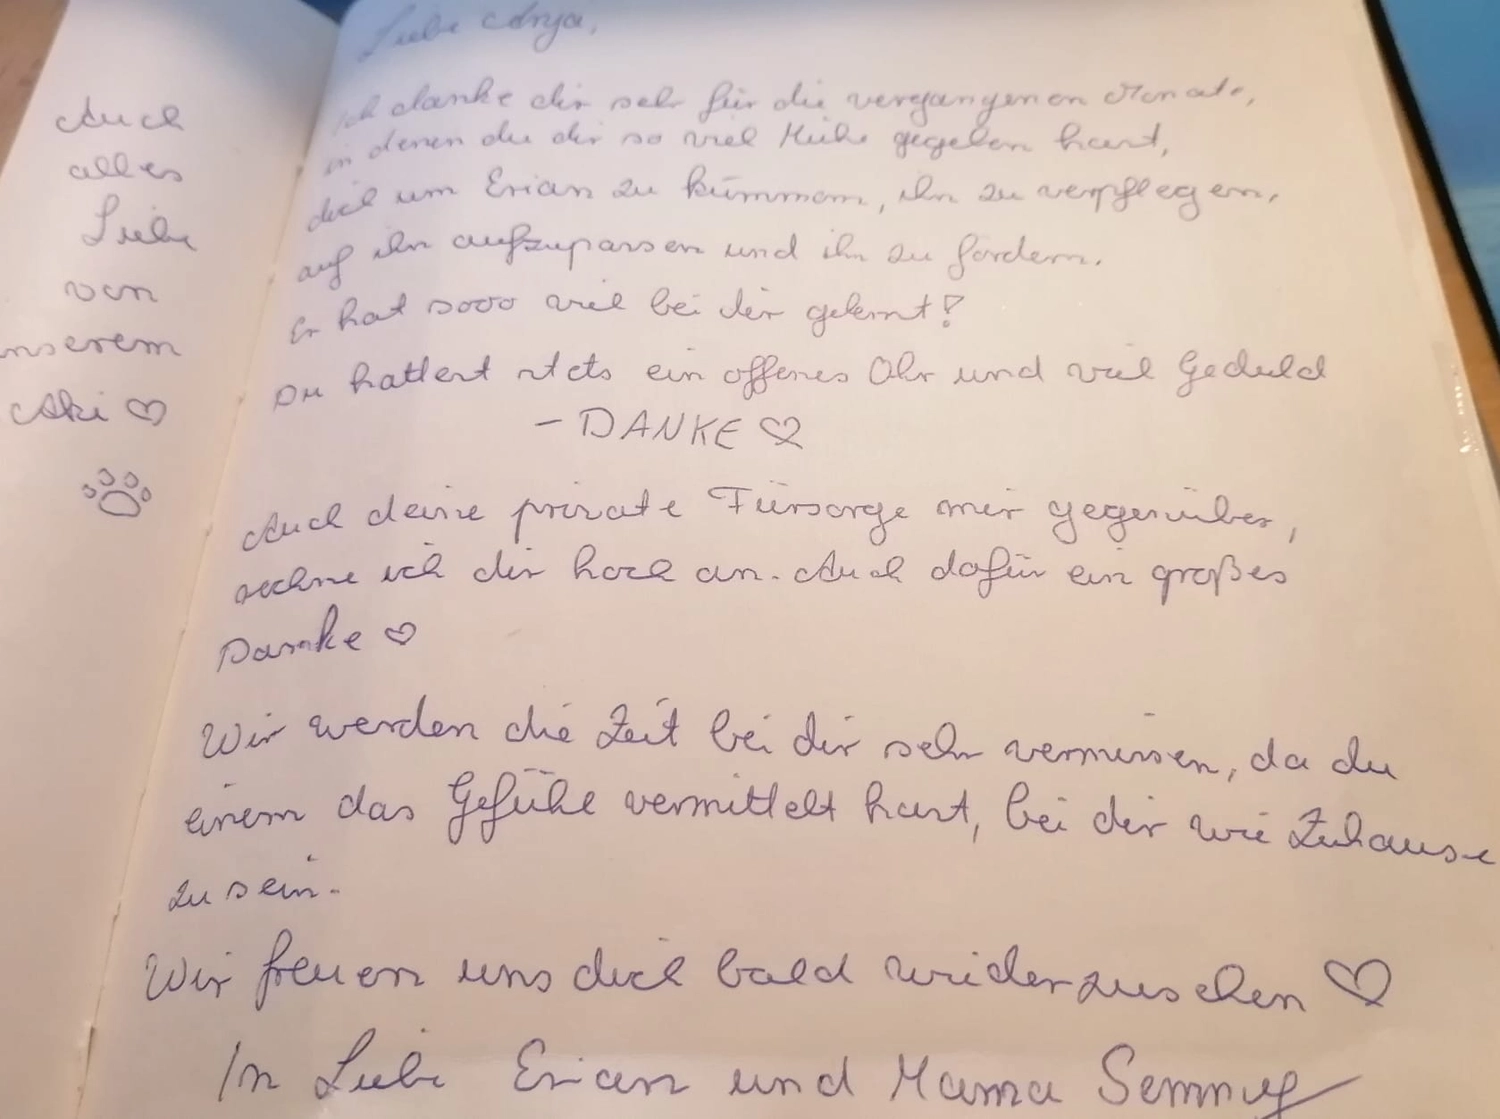 Auch
alles
Liebe
von
unserem
Aki ♡
Liebe Anja,
ich danke dir sehr für die vergangenen Monate,
in denen du dir so viel Mühe gegeben hast,
dich um Erian zu kümmern, ihn zu verpflegen,
auf ihn aufzupassen und ihn zu fördern.
Er hat sooo viel bei dir gelernt!
Du hattest stets ein offenes Ohr und viel Geduld
- DANKE ♡
Auch deine private Fürsorge mir gegenüber,
rechne ich dir hoch an. Auch dafür ein großes
Danke ♡
Wir werden die Zeit bei dir sehr vermissen, da du
einem das Gefühl vermittelt hast, bei dir wie Zuhause
zu sein.
Wir freuen uns dich bald widerzusehen ♡
In Liebe Erian und Mama